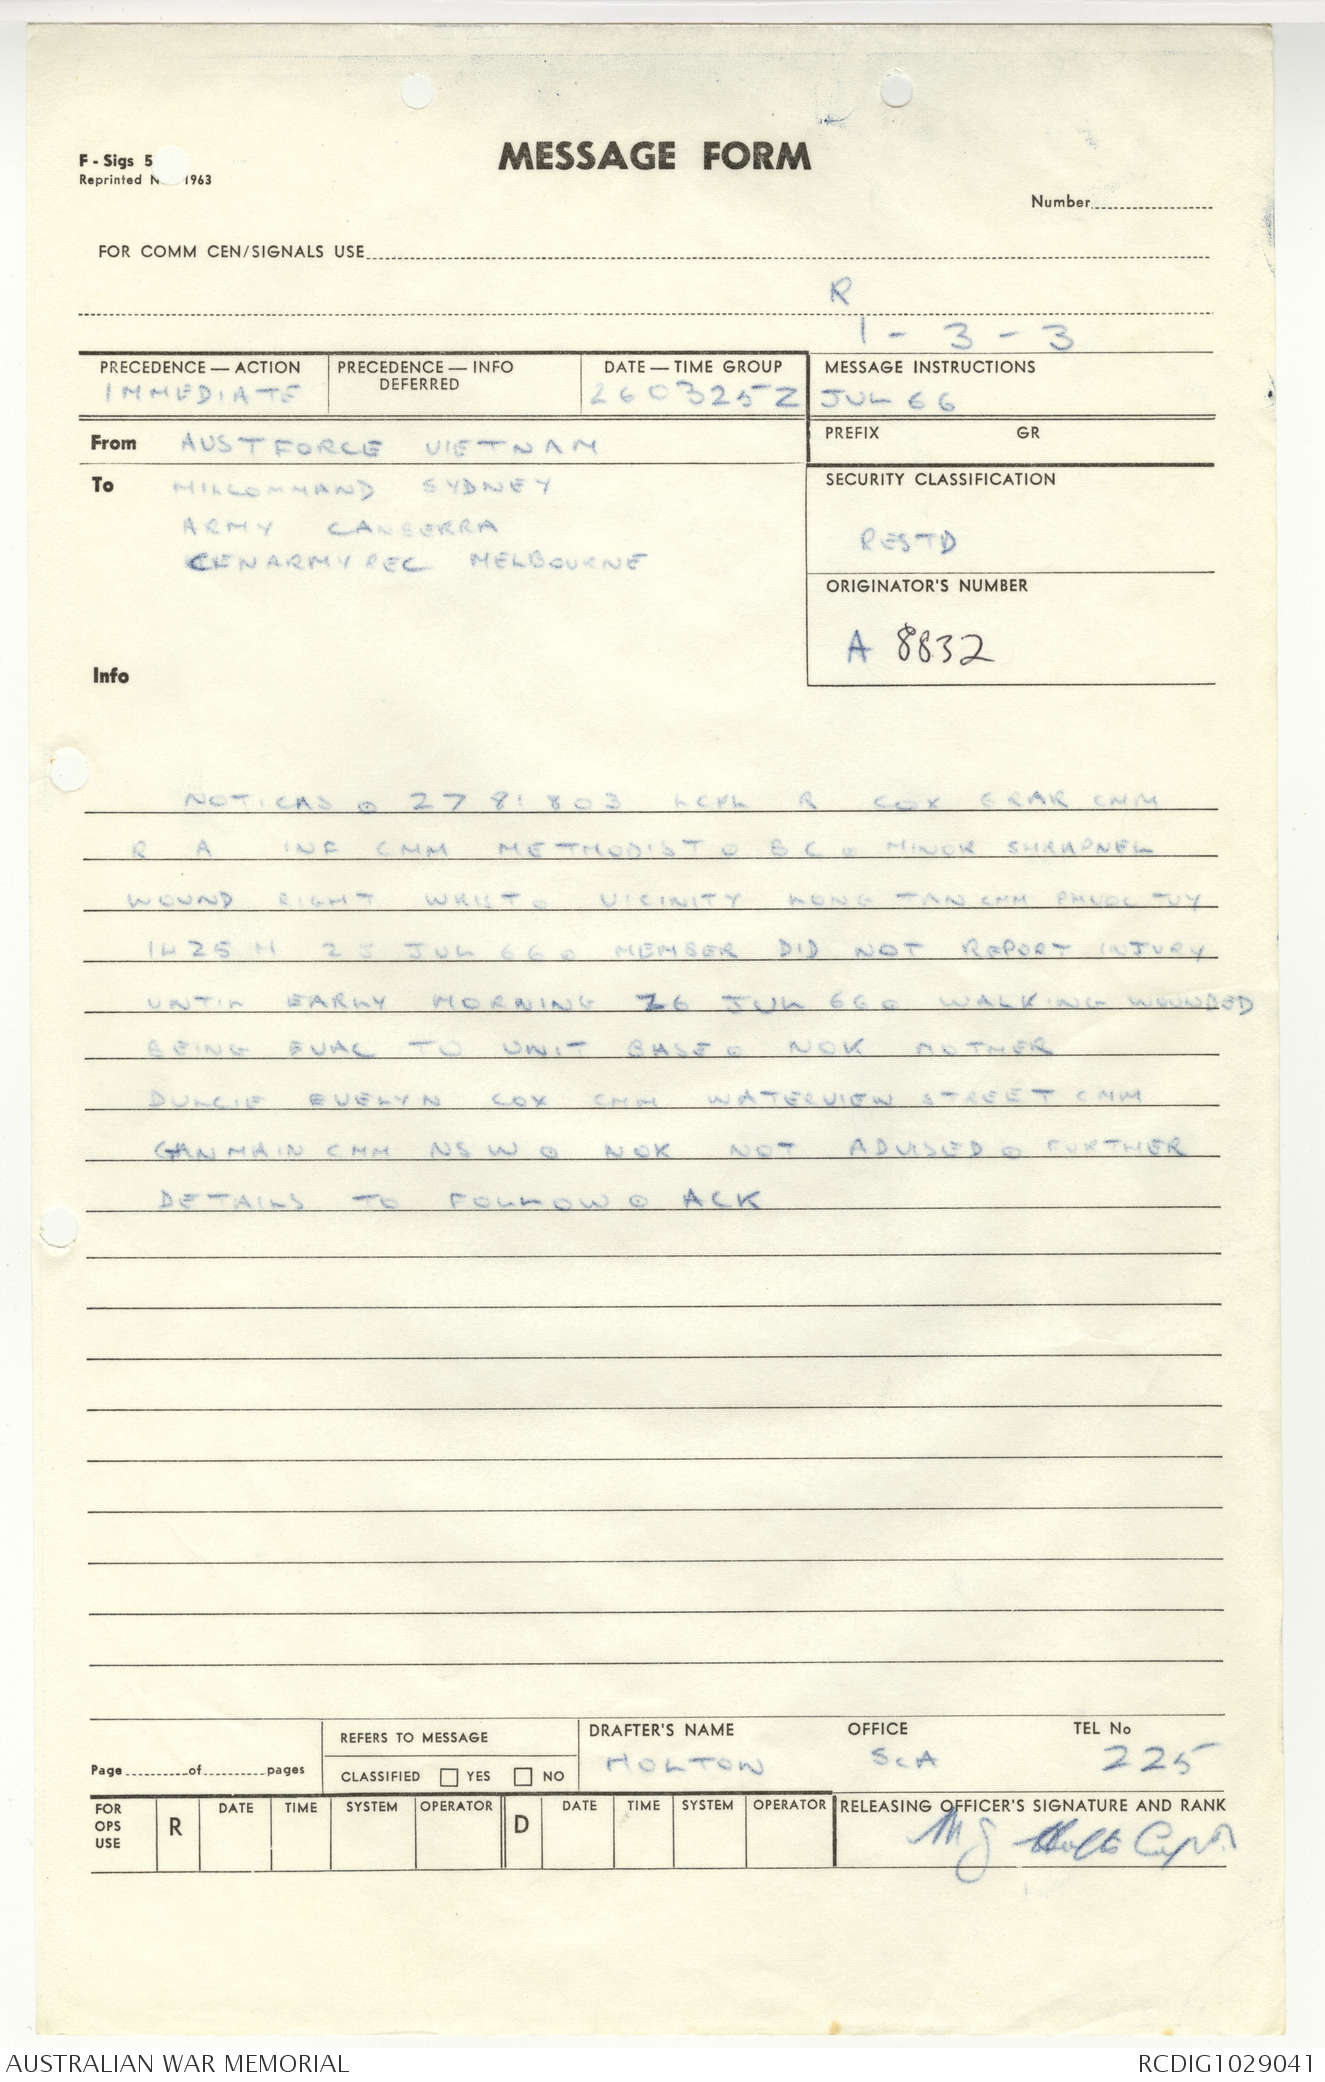 F - Sigs 5
MESSAGE FORM
Reprinted N 1963
Number
FOR COMM CEN/SIGNALS USE
R
1 - 3 - 3
PRECEDENCE — ACTION
IMMEDIATE
PRECEDENCE — INFO
DEFERRED
DATE — TIME GROUP
260325Z
MESSAGE INSTRUCTIONS
JUL 66
From AUSTFORCE VIETNAM
PREFIX GR
To MILCOMMAND SYDNEY
ARMY CANBERRA
CENARMYREC MELBOURNE
SECURITY CLASSIFICATION
RESTD
ORIGINATOR'S NUMBER
A 8832
Info
NOTICAS ⊙ 2781803 LCPL R COX 6RAR CMM
R A INF CMM METHODIST ⊙ B C ⊙ MINOR SHRAPNEL
WOUND RIGHT WRIST ⊙ VICINITY LONG TAN CMM PHUOC TUY
1425 H 25 JUL 66 ⊙ MEMBER DID NOT REPORT INJURY
UNTIL EARLY MORNING 26 JUL 66 ⊙ WALKING WOUNDED
BEING EVAC TO UNIT BASE ⊙ NOK MOTHER
DULCIE EVELYN COX CMM WATERVIEW STREET CMM
GANMAIN CMM NSW ⊙ NOK NOT ADVISED ⊙ FURTHER
DETAILS TO FOLLOW ⊙ ACK
Page of pages
REFERS TO MESSAGE
CLASSIFIED YES NO
DRAFTER'S NAME OFFICE TEL No
HOLTON ScA 225
FOR OPS USE
R DATE TIME SYSTEM OPERATOR
D DATE TIME SYSTEM OPERATOR
RELEASING OFFICER'S SIGNATURE AND RANK
Capt
AUSTRALIAN WAR MEMORIAL
RCDIG1029041